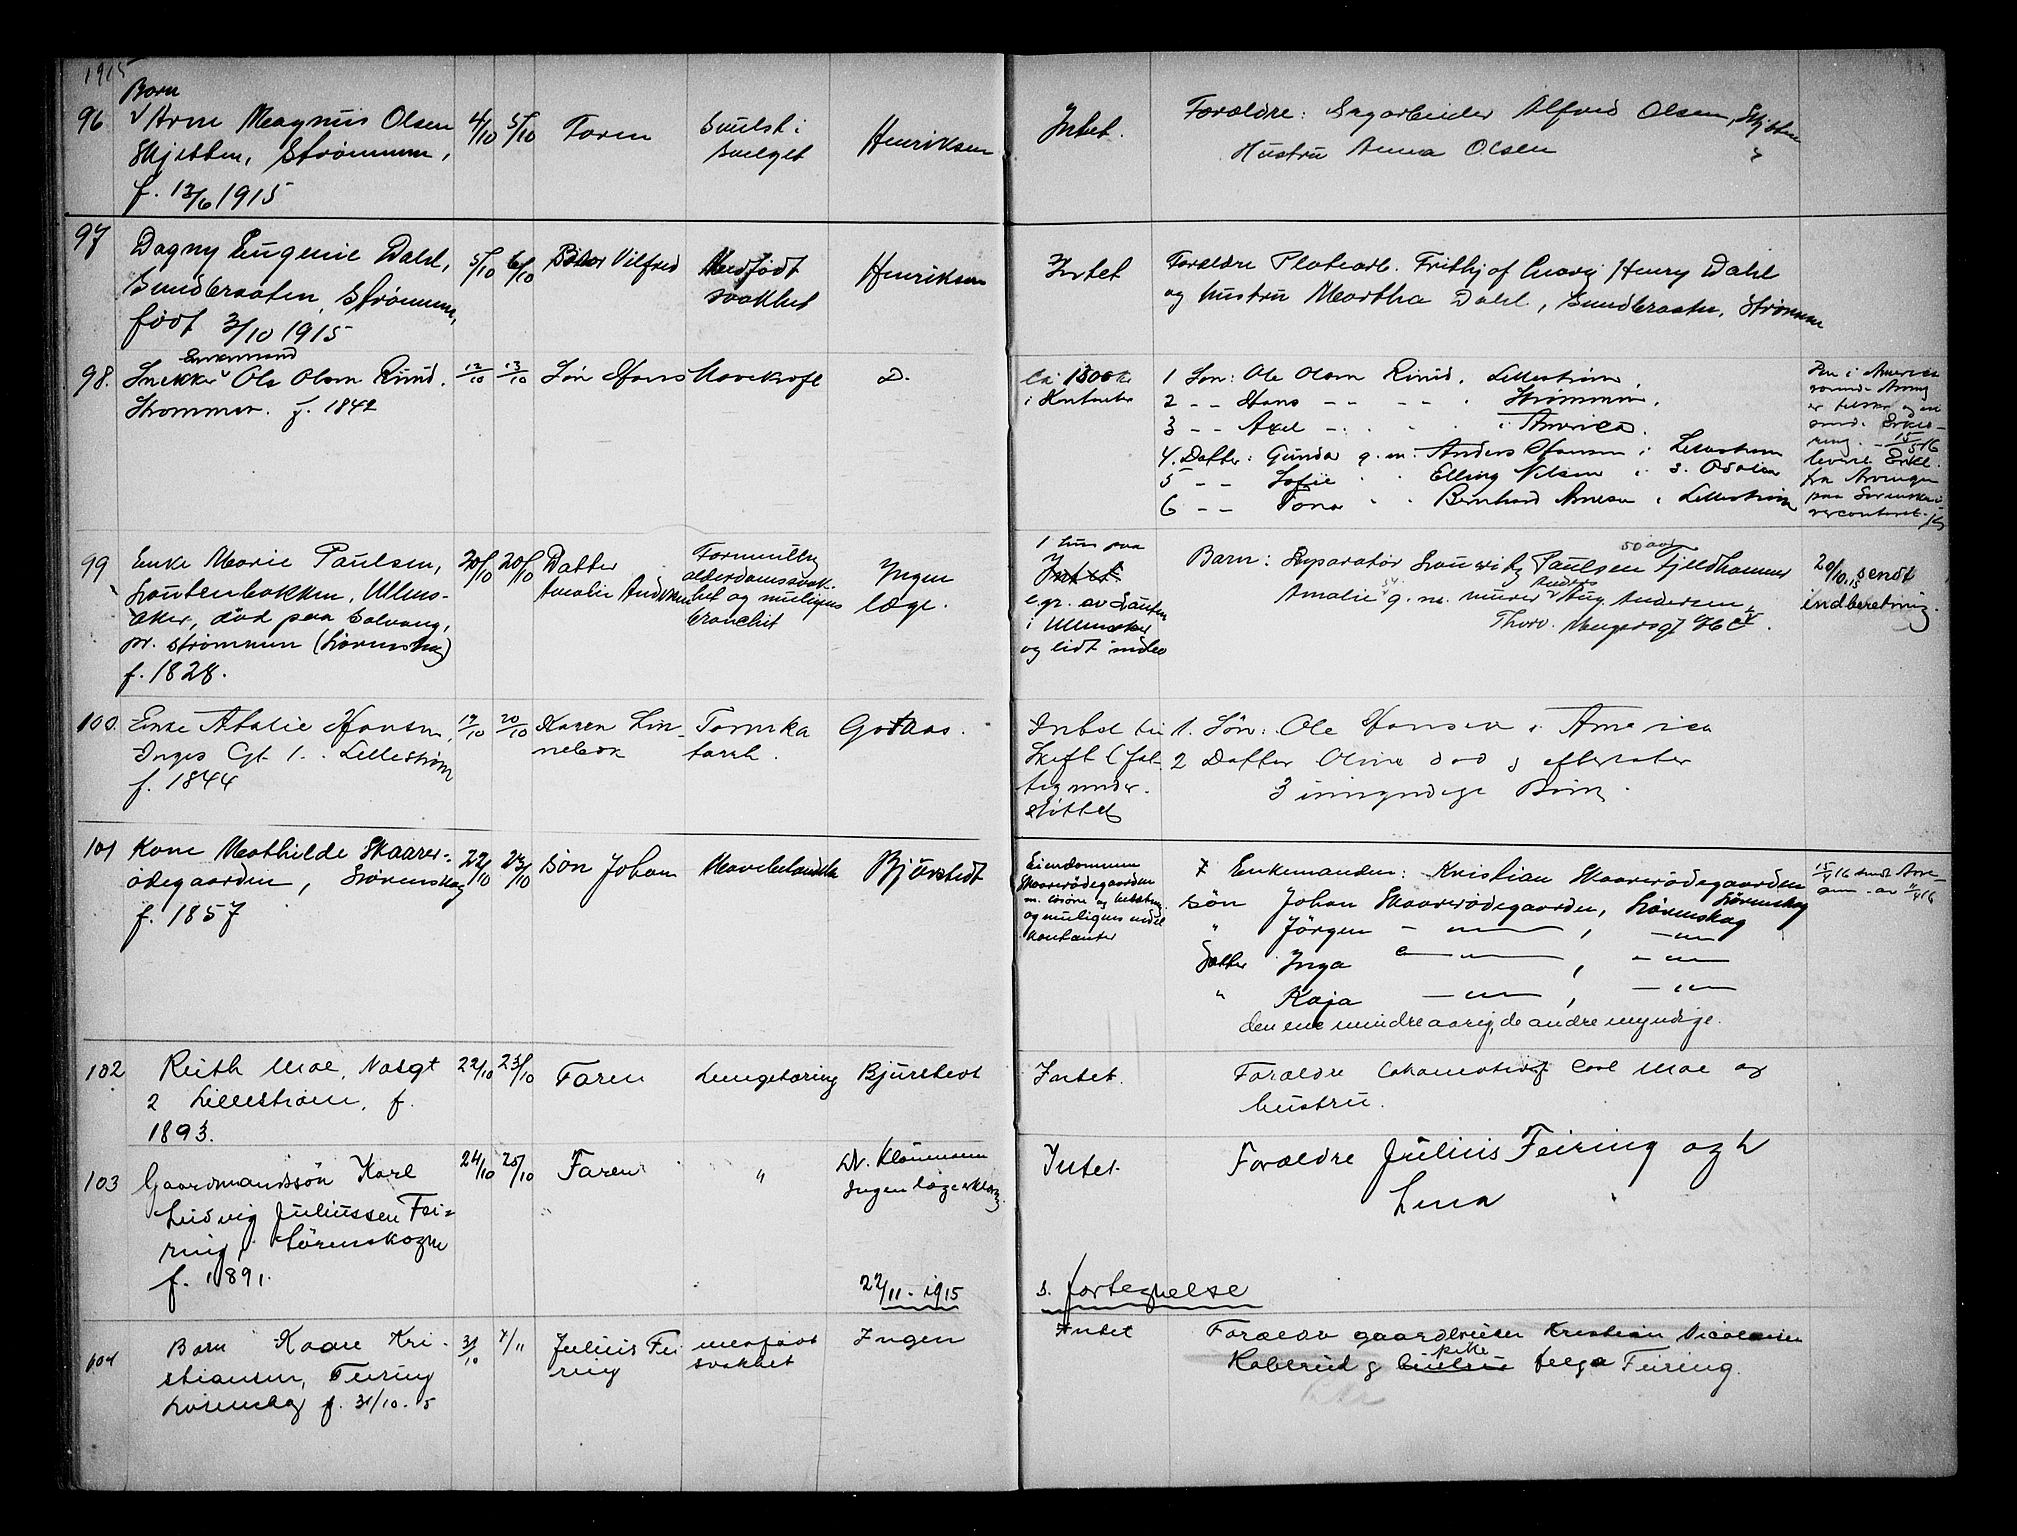 1915
96.
Barn
Arne Magnus Olsen
Skjetten, Strømmen,
f. 13/6 1915
4/10
5/10
Faren
Svulst i
Svelget
Henriksen
Intet.
Forældre: Sagarbeider Alfred Olsen, Skjetten
Hustru Anna Olsen "
97
Dagny Eugenie Dahl,
Sundbraaten, Strømmen,
født 3/10 1915
5/10
6/10
Vilfred
Medfødt
svakhet
Henriksen
Intet
Forældre Platearb. Frithjof Henry Dahl
og hustru Martha Dahl, Sundbraaten, Strømmen
98.
Enkemand
Snekker Ole Olsen Rud.
Strømmen. f. 1842
12/10
13/10
Søn Hans
Mavekræft
D.
Ca 1500 kr
i Kontanter
1 Søn: Ole Olsen Rud. Lillestrøm,
2 -- Hans -- -- . Strømmen.
3 -- Axel -- . . i America.
4. Datter: Gunda g.m. Anders Hansen i Lillestrøm
5 -- Sofie . . Elling Nilsen i S. Odalen
6 -- Tona . . Bernhard Arnesen i Lillestrøm
Den i America
er
15/5 16
fra Arvingen
paa Sorenskri-
vercontoret.
99
Enke Marie Paulsen,
Sautenbakken, Ullens-
aker, død paa Solvang,
pr. Strømmen (Lørenskog)
f. 1828.
20/10
20/10
Datter
Amalie Andersen
Formentlig
alderdomssvak-
het og muligens
bronchit
Ingen
læge.
1 hus paa
Intet
e gr. av Sauten
i Ullensaker
og lidt indbo
Barn: Reparatør Lauritz Paulsen Fjeldhammer
50 aar
Amalie 54 g.m. murer Anders Aug. Andersen,
Thorv. Meyersgt 46
20/10.15 sendt
indberetning.
100.
Enke Atalie Hansen,
Inges Gt 1. Lillestrøm
f. 1844
19/10
20/10
Karen Lin-
nebæk
Tarmka
tarrh.
Godaas.
Intet til
Skift (fat-
tigunder-
støttet
1. Søn: Ole Hansen i America
2 Datter Oline død, efterlater
3 umyndige Børn.
101
Kone Mathilde Skaarer-
ødegaarden, Lørenskog
f. 1857
22/10
23/10
Søn Johan
Bjørstedt
Eiendommen
Skaarerødegaarden
m. løsøre og besætning
og muligens endel
kontanter
Enkemanden: Kristian Skaarerødegaarden
Lørenskog
Søn Johan Skaarerødegaarden, Lørenskog
" Jørgen - " - , - " -
Datter Inga - " - , - " -
" Kaja - " - , - " -
den ene mindreaarig, de andre myndige.
15/4 16 sendt
av 11/4 16
102
Ruth Moe, Nesgt
2 Lillestrøm, f.
1893.
22/10
23/10
Faren
Lungetæring
Bjurstedt
Intet.
Forældre Lokomotivf Carl Moe og
hustru.
103
Gaardmandssøn Karl
Ludvig Juliussen Fei-
ring, Lørenskogen
f. 1891.
24/10
25/10
Faren
"
Dr. Klouman
Ingen lægeerklæring
Intet.
Forældre Julius Feiring og h
Lina
22/11. 1915
S. fortegnelse
104
Barn Kaare Kri-
stiansen, Feiring
Lørenskog f. 31/10. 15
31/10
4/11
Julius Fei
ring
medfødt
svakhet
Ingen
Intet
Forældre gaardbruker Kristian Nicolaisen
Kobberud og hustru pike Helga Feiring.